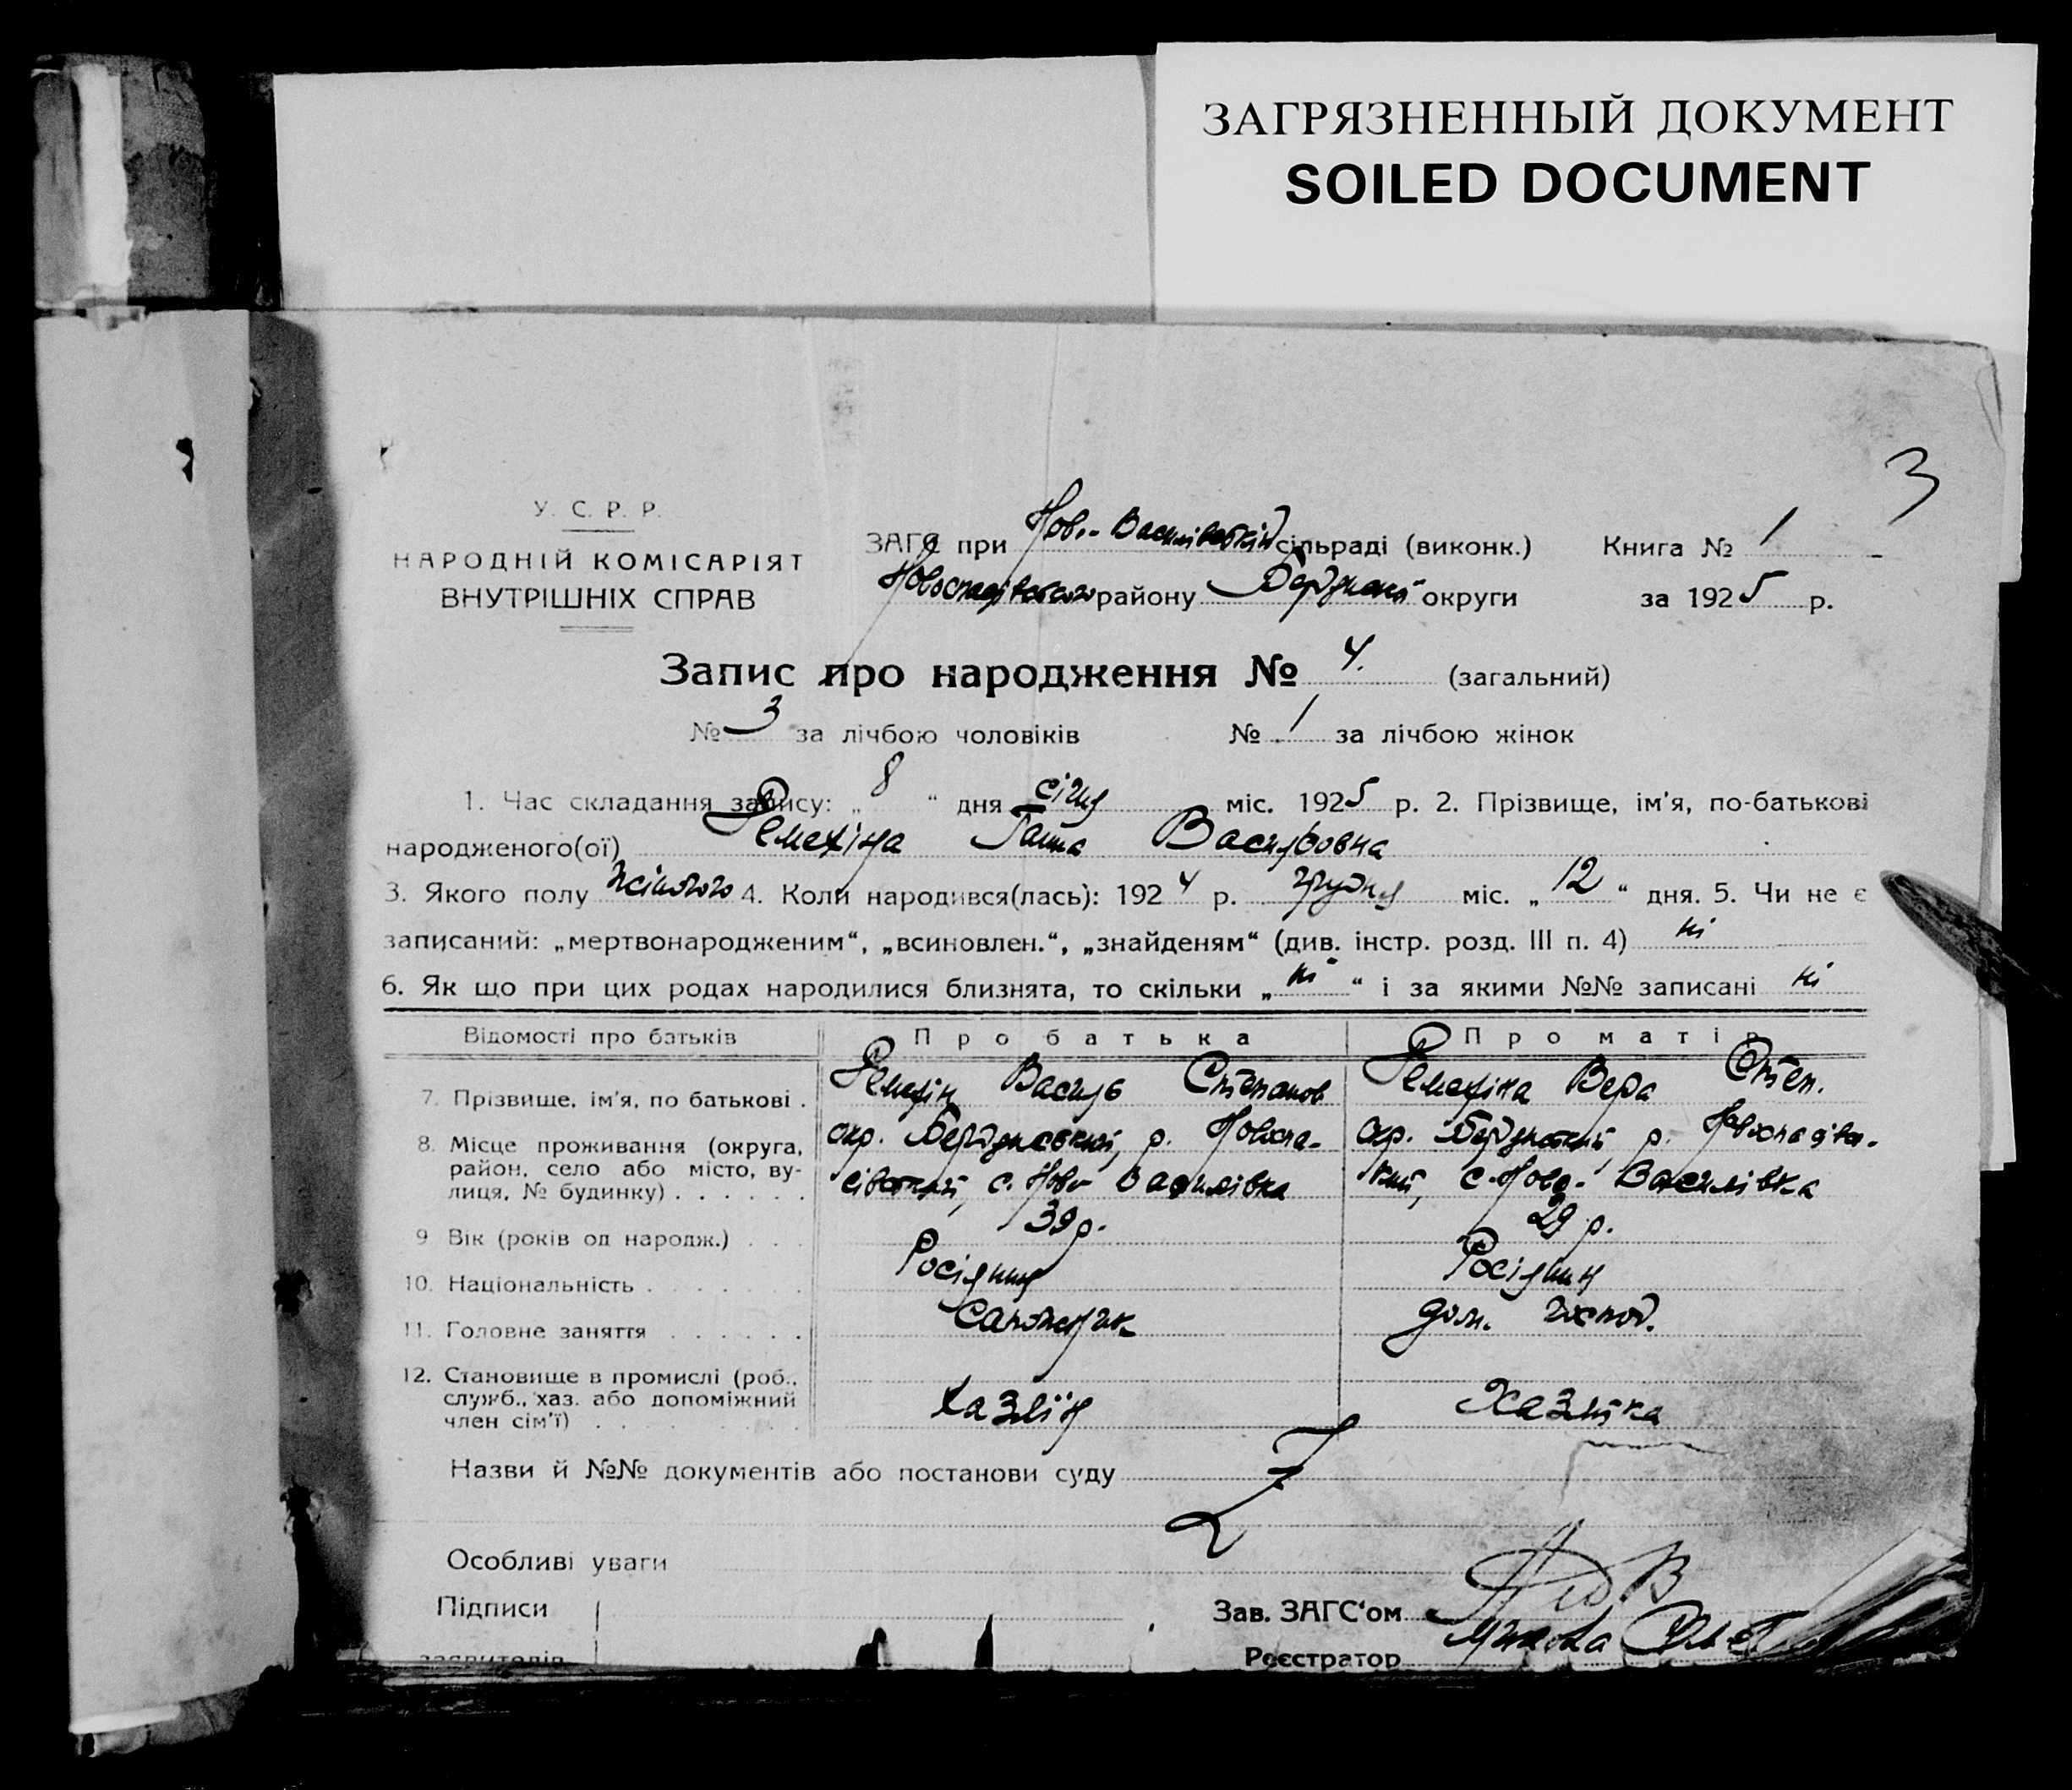 ЗАГРЯЗНЕННЫЙ ДОКУМЕНТ
SOILED DOCUMENT
3
У. С. Р. Р.
НАРОДНІЙ КОМІСАРІЯТ
ВНУТРІШНІХ СПРАВ
ЗАГС при Ново-Василівській сільраді (виконк.) Книга № 1
Новоспасівського району Бердянської округи за 1925 р.
Запис про народження № 4. (загальний)
№ 3 за лічбою чоловіків № 1 за лічбою жінок
1. Час складання запису: „ 8 “ дня січня міс. 1925 р. 2. Прізвище, ім'я, по-батькові
народженого(ої) Ремехіна Ганна Васильовна
3. Якого полу жіночого 4. Коли народився(лась): 1924 р. грудня міс. „ 12 “ дня. 5. Чи не є
записаний: „мертвонародженим“, „всиновлен.“, „знайденям“ (див. інстр. розд. III п. 4) ні
6. Як що при цих родах народилися близнята, то скільки „ ні “ і за якими №№ записані ні
Відомості про батьків Про батька Про матір
7. Прізвище, ім'я, по батькові . Ремехін Василь Степанов Ремехіна Вера Степ.
8. Місце проживання (округа, окр. Бердянський, р. Новоспа- окр. Бердянський, р. Новоспасівсь-
район, село або місто, ву- сівський, с. Ново Василівка кий, с. Ново-Василівка
лиця, № будинку) . . . . . .
9 Вік (років од народж.) . . . 39 р. 29 р.
10. Національність . . . . . . . Росіянин Росіянин
11. Головне заняття . . . . . . Сапожнік дом. господ.
12. Становище в промислі (роб.,
служб., хаз. або допоміжний Хазяїн Хазяйка
член сім'ї) . . . . . .
Назви й №№ документів або постанови суду
Особливі уваги
Підписи Зав. ЗАГС'ом
заявителів Реєстратор